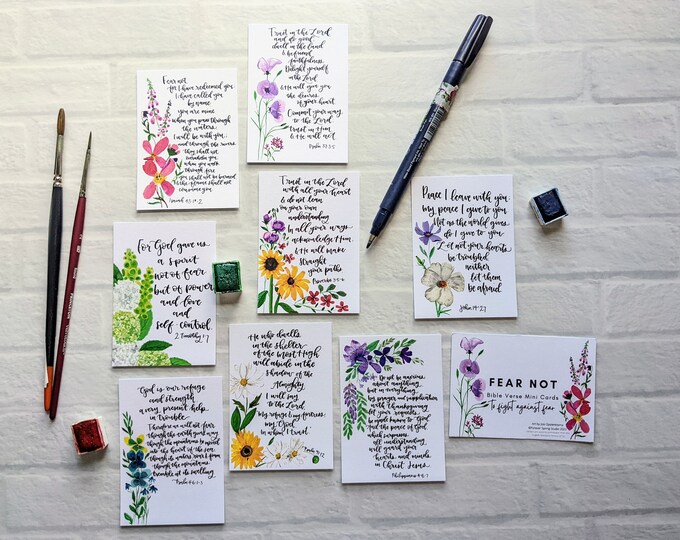 Trust in the Lord
and do good
dwell in the land
& befriend
faithfulness.
Delight yourself
in the Lord
& He will give you
the desires
of your heart
Commit your way
to the Lord
trust in Him
& He will act
Psalm 37:3-5
Fear not
for I have redeemed you
I have called you
by name
you are mine
when you pass through
the waters
I will be with you
and through the rivers
they shall not
overwhelm you
when you walk
through fire
you shall not be burned
& the flame shall not
consume you
Isaiah 43:1-2
Trust in the Lord
with all your heart
& do not lean
on your own
understanding
In all your ways
acknowledge Him
& He will make
straight
your paths
Proverbs 3:5-6
Peace I leave with you
my peace I give to you
Not as the world gives
do I give to you
Let not your hearts
be troubled
neither
let them
be afraid
John 14:27
For God gave us
a spirit
not of fear
but of power
and love
and
self-control.
2 Timothy 1:7
He who dwells
in the shelter
of the Most High
will abide in the
shadow of the
Almighty
I will say
to the Lord
My refuge & my fortress
my God,
in whom I trust.
God is our refuge
and strength
a very present help
in trouble
Therefore we will not fear
though the earth gives way
though the mountains be moved
into the heart of the sea
though its waters roar & foam
though the mountains
tremble at its swelling
Psalm 46:1-3
Do not be anxious
about anything
but in everything
by prayer and supplication
with thanksgiving
let your requests
be made known to God
and the peace of God
which surpasses
all understanding
will guard your
hearts and minds
in Christ Jesus
Philippians 4:6-7
FEAR NOT
Bible Verse Mini Cards
to fight against fear